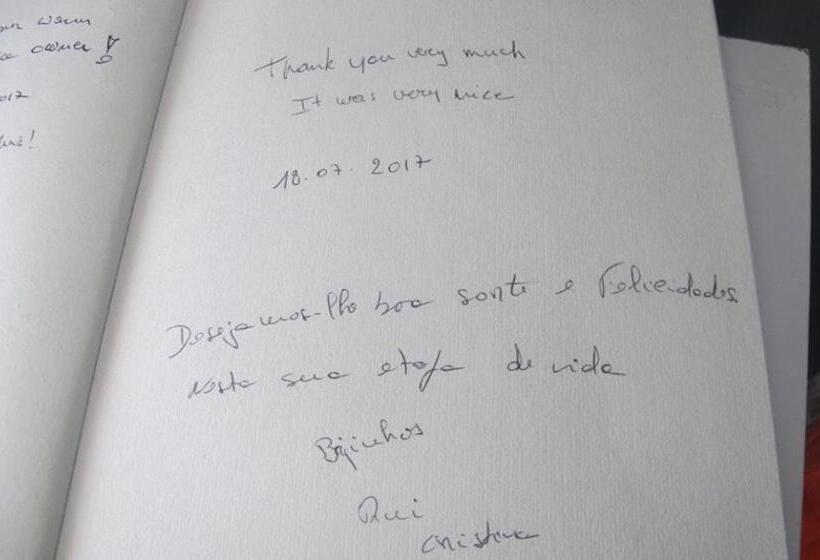 owner!
Thank you very much
It was very nice
18.07.2017
Desejamos-lhe boa sorte e Felicidades
Nesta sua etapa de vida
Bijinhos
Rui
Cristina